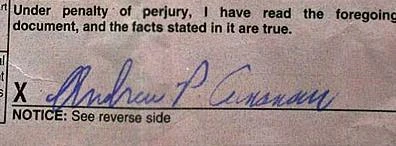 Under penalty of perjury, I have read the foregoing
document, and the facts stated in it are true.
X Andrew P. Cunanan
NOTICE: See reverse side